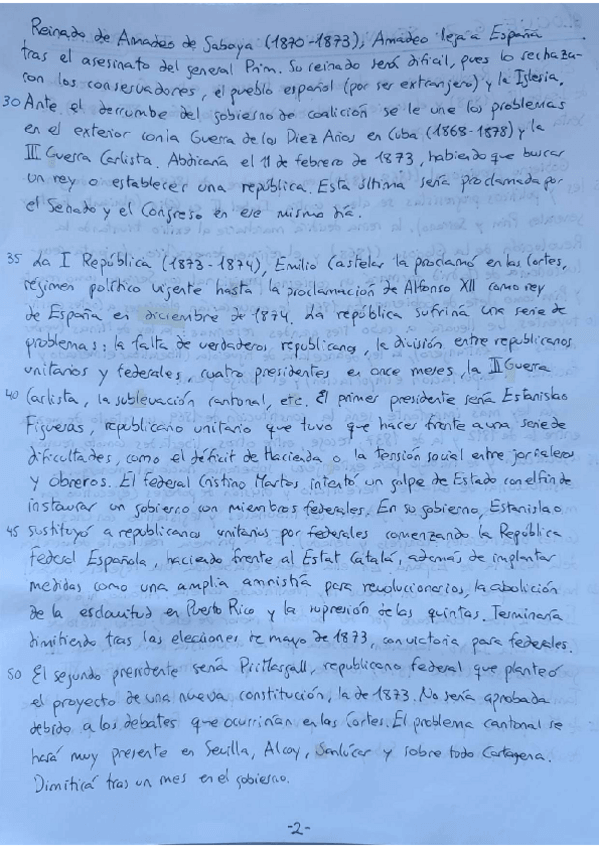 Reinado de Amadeo de Saboya (1870-1873), Amadeo llega a España
tras el asesinato del general Prim. Su reinado será dificil, pues lo rechaza-
ron los conservadores, el pueblo español (por ser extranjero) y la Iglesia.
30 Ante el derrumbe del gobierno de coalición se le une los problemas
en el exterior con la Guerra de los Diez Años en Cuba (1868-1878) y la
III Guerra Carlista. Abdicaría el 11 de febrero de 1873, habiendo que buscar
un rey o establecer una república. Esta última sería proclamada por
el Senado y el Congreso en ese mismo día.
35 La I República (1873-1874), Emilio Castelar la proclamó en las Cortes,
régimen político vigente hasta la proclamación de Alfonso XII como rey
de España en diciembre de 1874. La república sufriría una serie de
problemas: la falta de verdaderos republicanos, la división entre republicanos
unitarios y federales, cuatro presidentes en once meses, la III Guerra
40 Carlista, la sublevación cantonal, etc. El primer presidente sería Estanislao
Figueras, republicano unitario que tuvo que hacer frente a una serie de
dificultades, como el déficit de Hacienda o la tensión social entre jornaleros
y obreros. El federal Cristino Martos intentó un golpe de Estado con el fin de
instaurar un gobierno con miembros federales. En su gobierno, Estanislao
45 sustituyó a republicanos unitarios por federales comenzando la República
Federal Española, haciendo frente al Estat Catalá, además de implantar
medidas como una amplia amnistía para revolucionarios, la abolición
de la esclavitud en Puerto Rico y la supresión de las quintas. Terminaría
dimitiendo tras las elecciones de mayo de 1873, con victoria para federales.
50 El segundo presidente sería Pi i Margall, republicano federal que planteó
el proyecto de una nueva constitución, la de 1873. No sería aprobada
debido a los debates que ocurrirían en las Cortes. El problema cantonal se
hará muy presente en Sevilla, Alcoy, Sanlúcar y sobre todo Cartagena.
Dimitirá tras un mes en el gobierno.
-2-